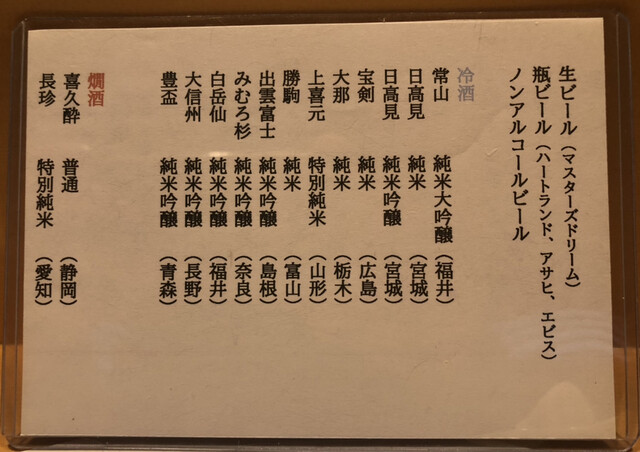 生ビール（マスターズドリーム）
瓶ビール（ハートランド、アサヒ、エビス）
ノンアルコールビール
冷酒
常山 純米大吟醸（福井）
日高見 純米（宮城）
日高見 純米吟醸（宮城）
宝剣 純米（広島）
大那 純米（栃木）
上喜元 特別純米（山形）
勝駒 純米（富山）
出雲富士 純米吟醸（島根）
みむろ杉 純米吟醸（奈良）
白岳仙 純米吟醸（福井）
大信州 純米吟醸（長野）
豊盃 純米吟醸（青森）
燗酒
喜久酔 普通（静岡）
長珍 特別純米（愛知）